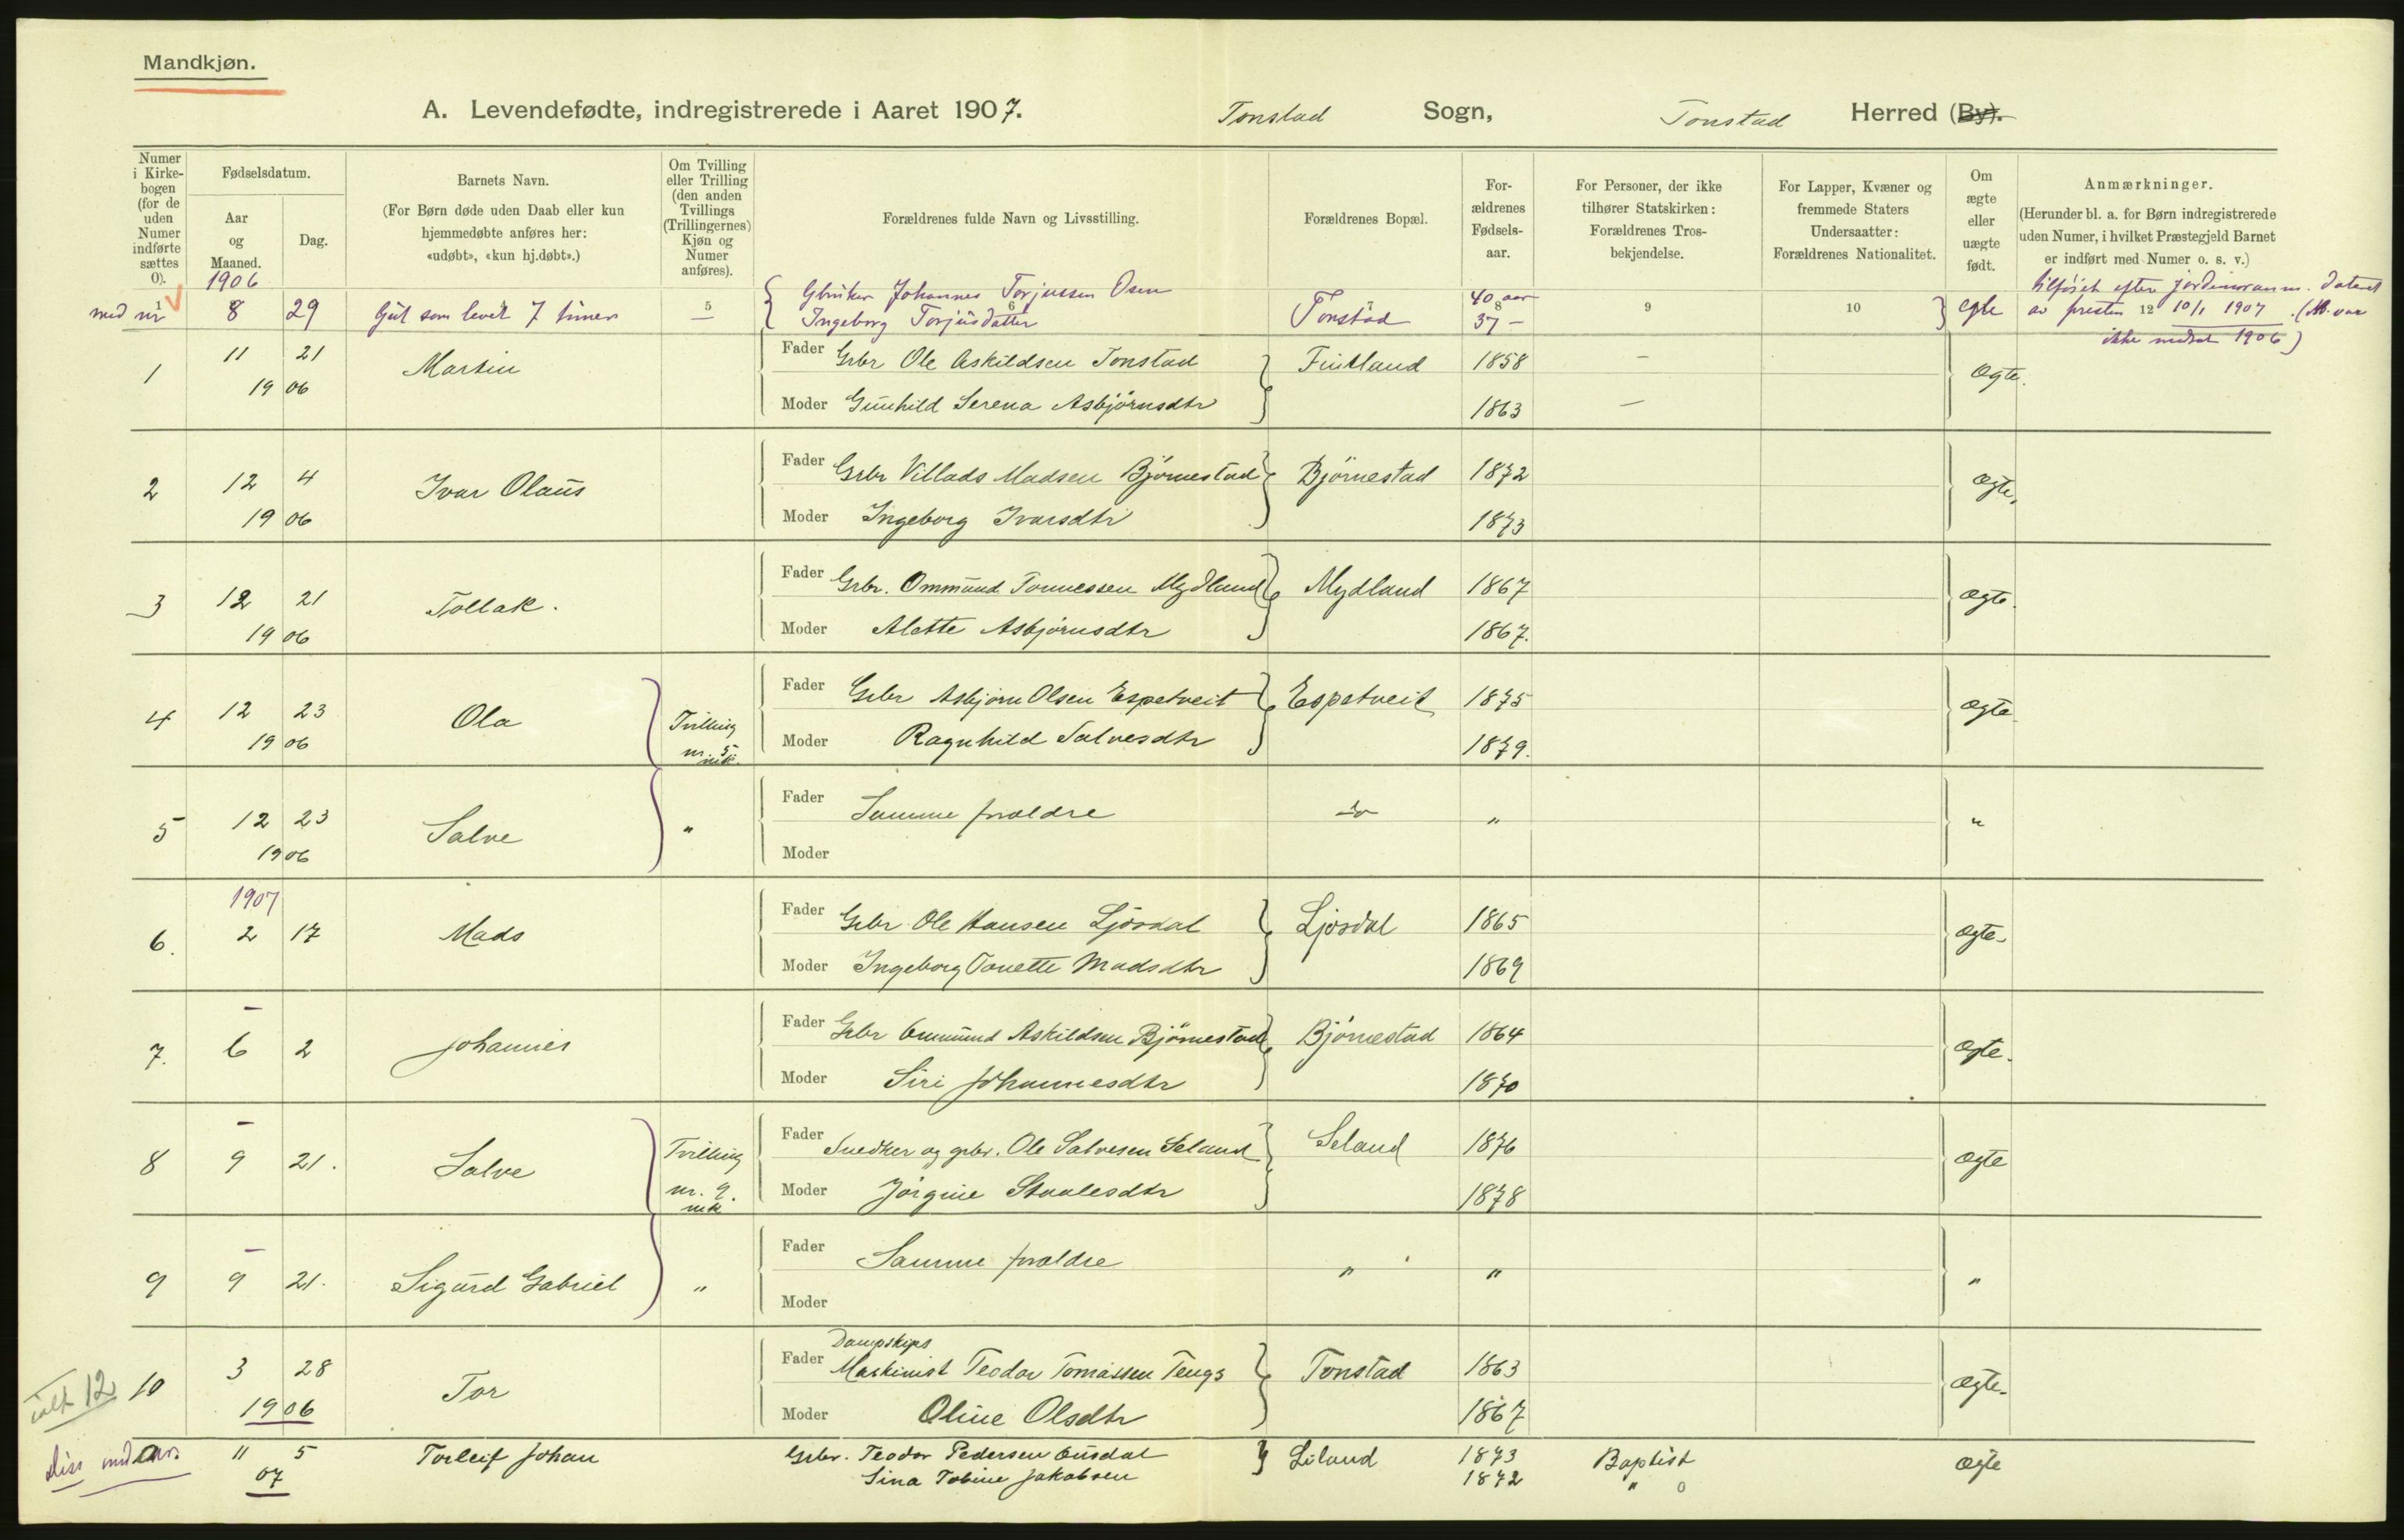 Mandkjøn.
A. Levendefødte, indregistrerede i Aaret 1907. Tonstad Sogn, Tonstad Herred (By).
Numer i Kirkebogen (for de uden Numer indførte sættes 0).
Fødselsdatum.
Aar og Maaned.
Dag.
Barnets Navn.
(For Børn døde uden Daab eller kun hjemmedøbte anføres her: «udøbt», «kun hj.døbt».)
Om Tvilling eller Trilling (den anden Tvillings (Trillingernes) Kjøn og Numer anføres).
Forældrenes fulde Navn og Livsstilling.
Forældrenes Bopæl.
Forældrenes Fødselsaar.
For Personer, der ikke tilhører Statskirken: Forældrenes Trosbekjendelse.
For Lapper, Kvæner og fremmede Staters Undersaatter: Forældrenes Nationalitet.
Om ægte eller uægte født.
Anmærkninger.
(Herunder bl. a. for Børn indregistrerede uden Numer, i hvilket Præstegjeld Barnet er indført med Numer o. s. v.)
1 5 6 7 8 9 10 12
1906
8 29 Gut som levet 7 timer Gbruker Johannes Torjussen Osen Tonstad 40 aar egte
Ingeborg Torjusdatter 37 —
tilføiet efter jordmoranm. dateret
av presten 10/1 1907
ikke medtat 1906)
1 11 21 Martin Fader Grbr Ole Askildsen Tonstad Fintland 1858 — Ægte.
19 06 Moder Gunhild Serena Asbjörnsdtr 1863 —
2 12 4 Ivar Olaus Fader Grbr Villads Madsen Björnestad Björnestad 1872 Ægte.
19 06 Moder Ingeborg Ivarsdtr 1873
3 12 21 Tollak. Fader Grbr. Ommund Tonnessen Mydland Mydland 1867 Ægte.
19 06 Moder Alette Asbjörnsdtr 1867.
4 12 23 Ola Tvilling nr. 5 mk. Fader Grbr Asbjörn Olsen Espetveit Espetveit 1875 Ægte
19 06 Moder Ragnhild Salvesdtr 1879.
5 12 23 Salve " Fader Samme forældre do " "
19 06 Moder
1907
6. 2 17 Mads Fader Grbr Ole Hansen Ljösdal Ljosdal 1865 Ægte.
Moder Ingeborg Tonette Madsdtr 1869
—
7. 6 2 Johannes Fader Grbr Ommund Askildsen Björnestad Björnestad 1864 Ægte.
Moder Siri Johannesdtr 1870
—
8 9 21. Salve Tvilling nr. 9. mk Fader Snedker og grbr. Ole Salvesen Seland Seland 1876 Ægte
Moder Jörgine Staalesdtr 1878
—
9 9 21. Sigurd Gabriel " Fader Samme forældre " " "
Moder
10 3 28 Tor Fader Dampskips Maskinist Teodor Tomassen Tengs Tonstad 1863 Ægte.
19 06 Moder Oline Olsdtr 1867
ialt 12
11 5 Torleif Johan Grbr. Teodor Pedersen Ousdal Liland 1873 Baptist Ægte
07 Sina Tobine Jakobsen 1872 " 0